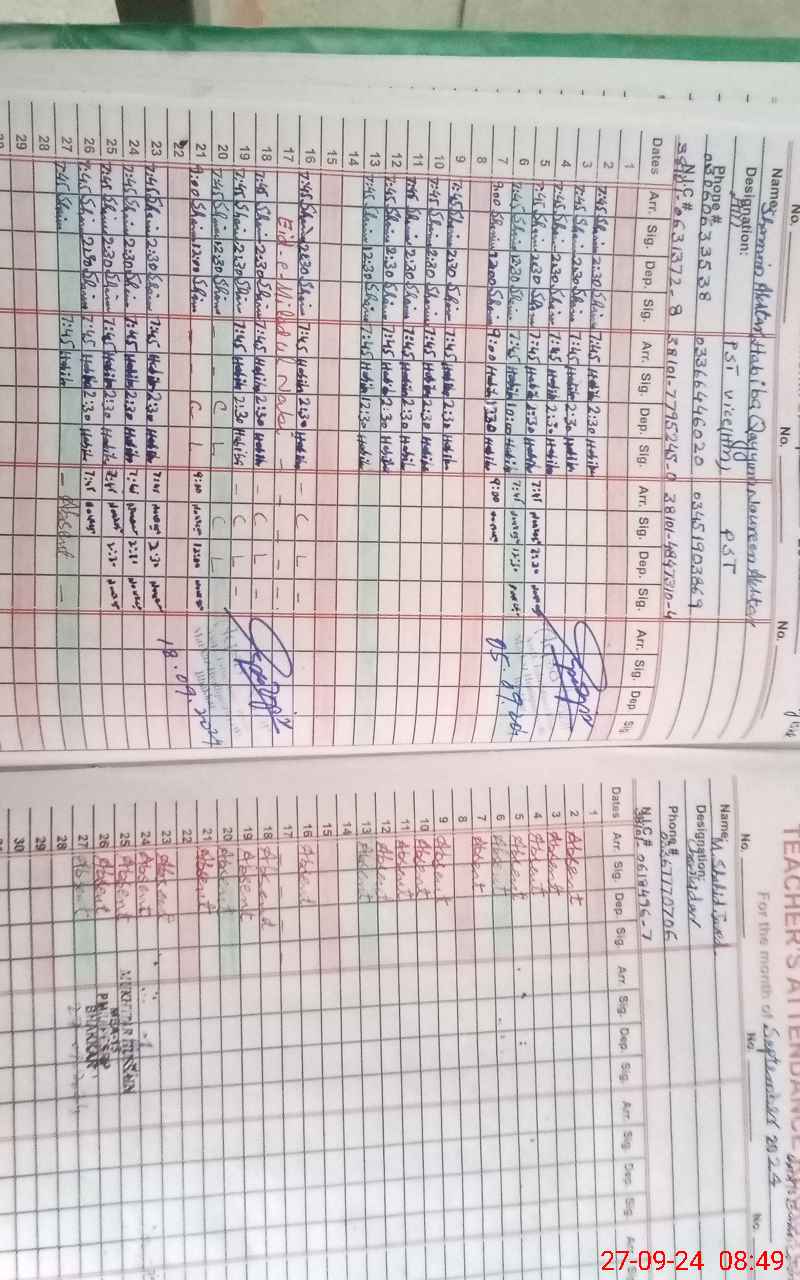 No. No. No.
Name: Shamim Akhtar Habiba Qayyum Noureen Akhtar
Designation: PST vice (HM) PST
Phone #
03060633538 03366446020 03451903869
N.I.C #
0631372-8 38101-7795245-0 38101-4847310-4
Dates Arr. Sig. Dep. Sig. Arr. Sig. Dep. Sig. Arr. Sig. Dep. Sig. Arr. Sig. Dep Sig.
1
2 7:45 Shaim 2:30 Shaim 7:45 Habiba 2:30 Habiba
3 7:45 Shaim 2:30 Shaim 7:45 Habiba 2:30 Habiba
4 7:45 Shaim 2:30 Shaim 7:45 Habiba 2:30 Habiba
5 7:45 Shaim 2:30 Shaim 7:45 Habiba 2:30 Habiba 7:45 2:30
6 7:45 Shaim 12:30 Shaim 7:45 Habiba 10:10 Habiba 7:45 12:30
7 9:00 Shaim 12:00 Shaim 9:00 Habiba Habiba 9:00
05.09.2024
8
9 7:45 Shaim 2:30 Shaim 7:45 Habiba 2:30 Habiba
10 7:45 Shaim 2:30 Shaim 7:45 Habiba 2:30 Habiba
11 7:45 Shaim 2:30 Shaim 7:45 Habiba 2:30 Habiba
12 7:45 Shaim 2:30 Shaim 7:45 Habiba 2:30 Habiba
13 7:45 Shaim 12:30 Shaim 7:45 Habiba 12:30 Habiba
14
15
16 7:45 Shaim 2:30 Shaim 7:45 Habiba 2:30 Habiba - C L -
17 Eid-e-Milad ul Nabi - - - -
18 7:45 Shaim 2:30 Shaim 7:45 Habiba 2:30 Habiba - C L -
19 7:45 Shaim 2:30 Shaim 7:45 Habiba 2:30 Habiba - C L -
20 7:45 Shaim 12:30 Shaim - C L - - C L -
21 9:00 Shaim 12:00 Shaim - C L - 9:00 12:00
18.09.2024
22
23 7:45 Shaim 2:30 Shaim 7:45 Habiba 2:30 Habiba 7:45 2:30
24 7:45 Shaim 2:30 Shaim 7:45 Habiba 2:30 Habiba 7:45 2:30
25 7:45 Shaim 2:30 Shaim 7:45 Habiba 2:30 Habiba 7:45 2:30
26 7:45 Shaim 2:30 Shaim 7:45 Habiba 2:30 Habiba 7:45
27 7:45 Shaim 7:45 Habiba - Absent -
28
29
TEACHER'S ATTENDANCE
For the month of September 2024
No. No. No.
Name: M. Shahid Javed
Designation: Chowkidar
Phone # 03367770706
N.I.C # 38101-0618496-7
Dates Arr. Sig. Dep. Sig. Arr. Sig. Dep. Sig. Arr. Sig. Dep Sig. Arr.
1
2 Absent
3 Absent
4 Absent
5 Absent
6 Absent
7 Absent
8
9 Absent
10 Absent
11 Absent
12 Absent
13 Absent
14
15
16 Absent
17 - - - -
18 Absent
19 Absent
20 Absent
21 Absent
22
23 Absent
24 Absent
25 Absent
26 Absent
27 Absent
28
29
30
MUKHTAR HUSSAIN
BHAKKAR
27-09-24 08:49